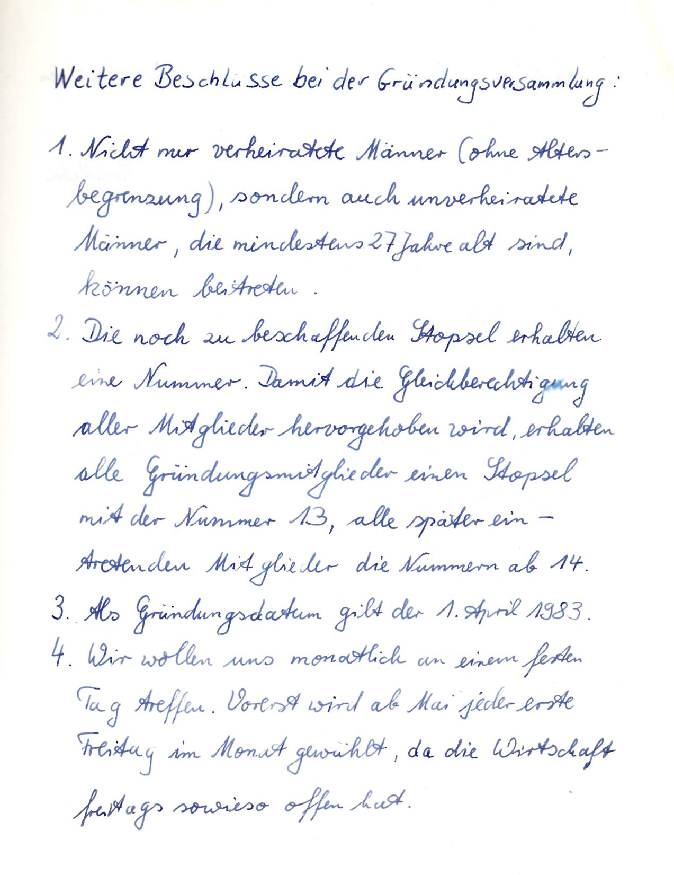 Weitere Beschlüsse bei der Gründungsversammlung:
1. Nicht nur verheiratete Männer (ohne Alters-
begrenzung), sondern auch unverheiratete
Männer, die mindestens 27 Jahre alt sind,
können beitreten.
2. Die noch zu beschaffenden Stopsel erhalten
eine Nummer. Damit die Gleichberechtigung
aller Mitglieder hervorgehoben wird, erhalten
alle Gründungsmitglieder einen Stopsel
mit der Nummer 13, alle später ein-
tretenden Mitglieder die Nummern ab 14.
3. Als Gründungsdatum gilt der 1. April 1983.
4. Wir wollen uns monatlich an einem festen
Tag treffen. Vorerst wird ab Mai jeder erste
Freitag im Monat gewählt, da die Wirtschaft
freitags sowieso offen hat.